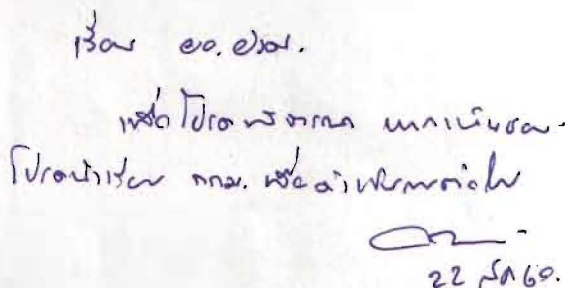 เรียน ผอ.
เพื่อโปรดพิจารณา หากเห็นชอบ
โปรดนำเรียน กกม. เพื่อดำเนินการต่อไป
22 สค 60.